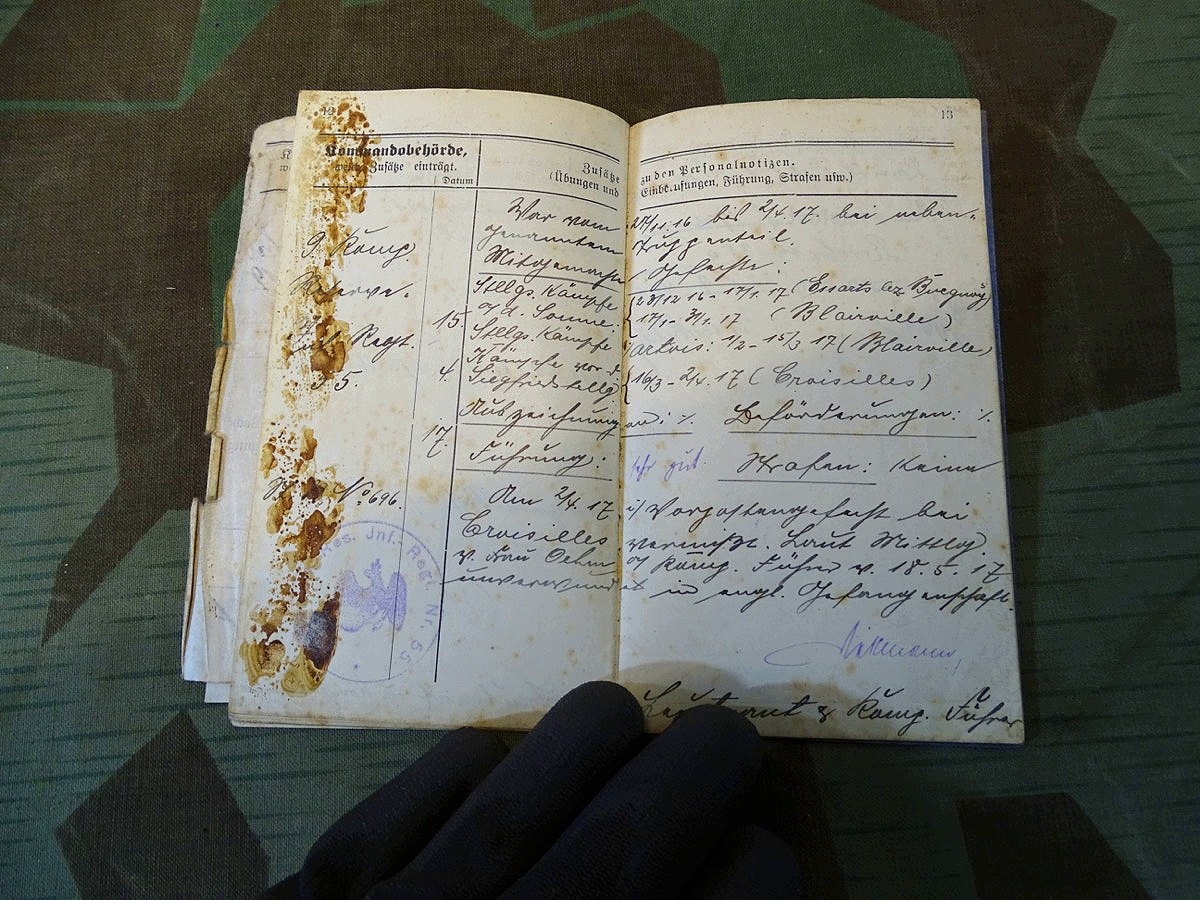 12
Kommandobehörde,
welche Zusätze einträgt.
Datum
9. Komp.
Reserve-
Inf. Regt.
55.
No 696.
Res. Inf. Regt. Nr. 55
15.
4.
17.
13
Zusätze zu den Personalnotizen.
(Übungen und Einberufungen, Führung, Strafen usw.)
War vom 27/11.16 bis 2/4.17. bei neben-
genanntem Truppenteil.
Mitgemachte Gefechte:
Stllgs. Kämpfe 23/12 16 - 17/1. 17 (Essarts bez. Bucquoy)
a/d. Somme. 17/1 - 31/1. 17 (Blairville)
Stllgs. Kämpfe i/Artois: 1/2 - 15/3 17 (Blairville)
Kämpfe vor d.
Siegfriedstellg 16/3 - 2/4. 17 (Croisilles)
Auszeichnungen: ٪ Beförderungen: ٪
Führung: sehr gut. Strafen: Keine
Am 2/4. 17. i/ Vorpostengefecht bei
Croisilles vermißt. Laut Mittlg.
v. Frau Oehm a/ Komp. Führer v. 18. 5. 17
unverwundet in engl. Gefangenschaft.
Leutnant & Komp. Führer